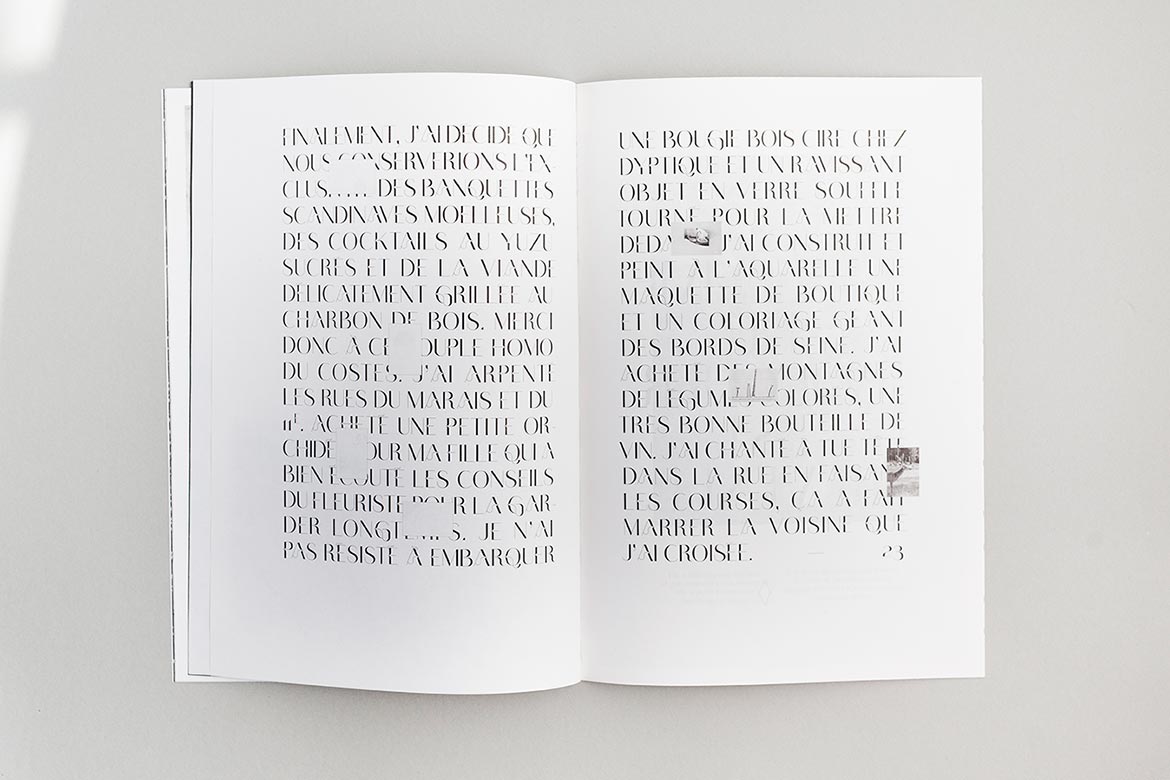 FINALEMENT, J'AI DECIDE QUE
NOUS CONSERVERIONS L'EX-
CLUS..... DES BANQUETTES
SCANDINAVES MOELLEUSES,
DES COCKTAILS AU YUZU
SUCRES ET DE LA VIANDE
DELICATEMENT GRILLEE AU
CHARBON DE BOIS. MERCI
DONC A CE COUPLE HOMO
DU COSTES. J'AI ARPENTE
LES RUES DU MARAIS ET DU
ACHETE UNE PETITE OR-
CHIDEE POUR MA FILLE QUI A
BIEN ECOUTE LES CONSEILS
DU FLEURISTE POUR LA GAR-
DER LONGTEMPS. JE N'AI
PAS RESISTE A EMBARQUER
UNE BOUGIE BOIS CIRE CHEZ
DYPTIQUE ET UN RAVISSANT
OBJET EN VERRE SOUFFLE
TOURNE POUR LA METTRE
DEDA J'AI CONSTRUIT ET
PEINT A L'AQUARELLE UNE
MAQUETTE DE BOUTIQUE
ET UN COLORIAGE GEANT
DES BORDS DE SEINE. J'AI
ACHETE DES MONTAGNES
DE LEGUM COLORES, UNE
TRES BONNE BOUTEILLE DE
VIN. J'AI CHANTE A TUE TETE
DANS LA RUE EN FAISANT
LES COURSES, ÇA A FAIT
MARRER LA VOISINE QUE
J'AI CROISEE. 23